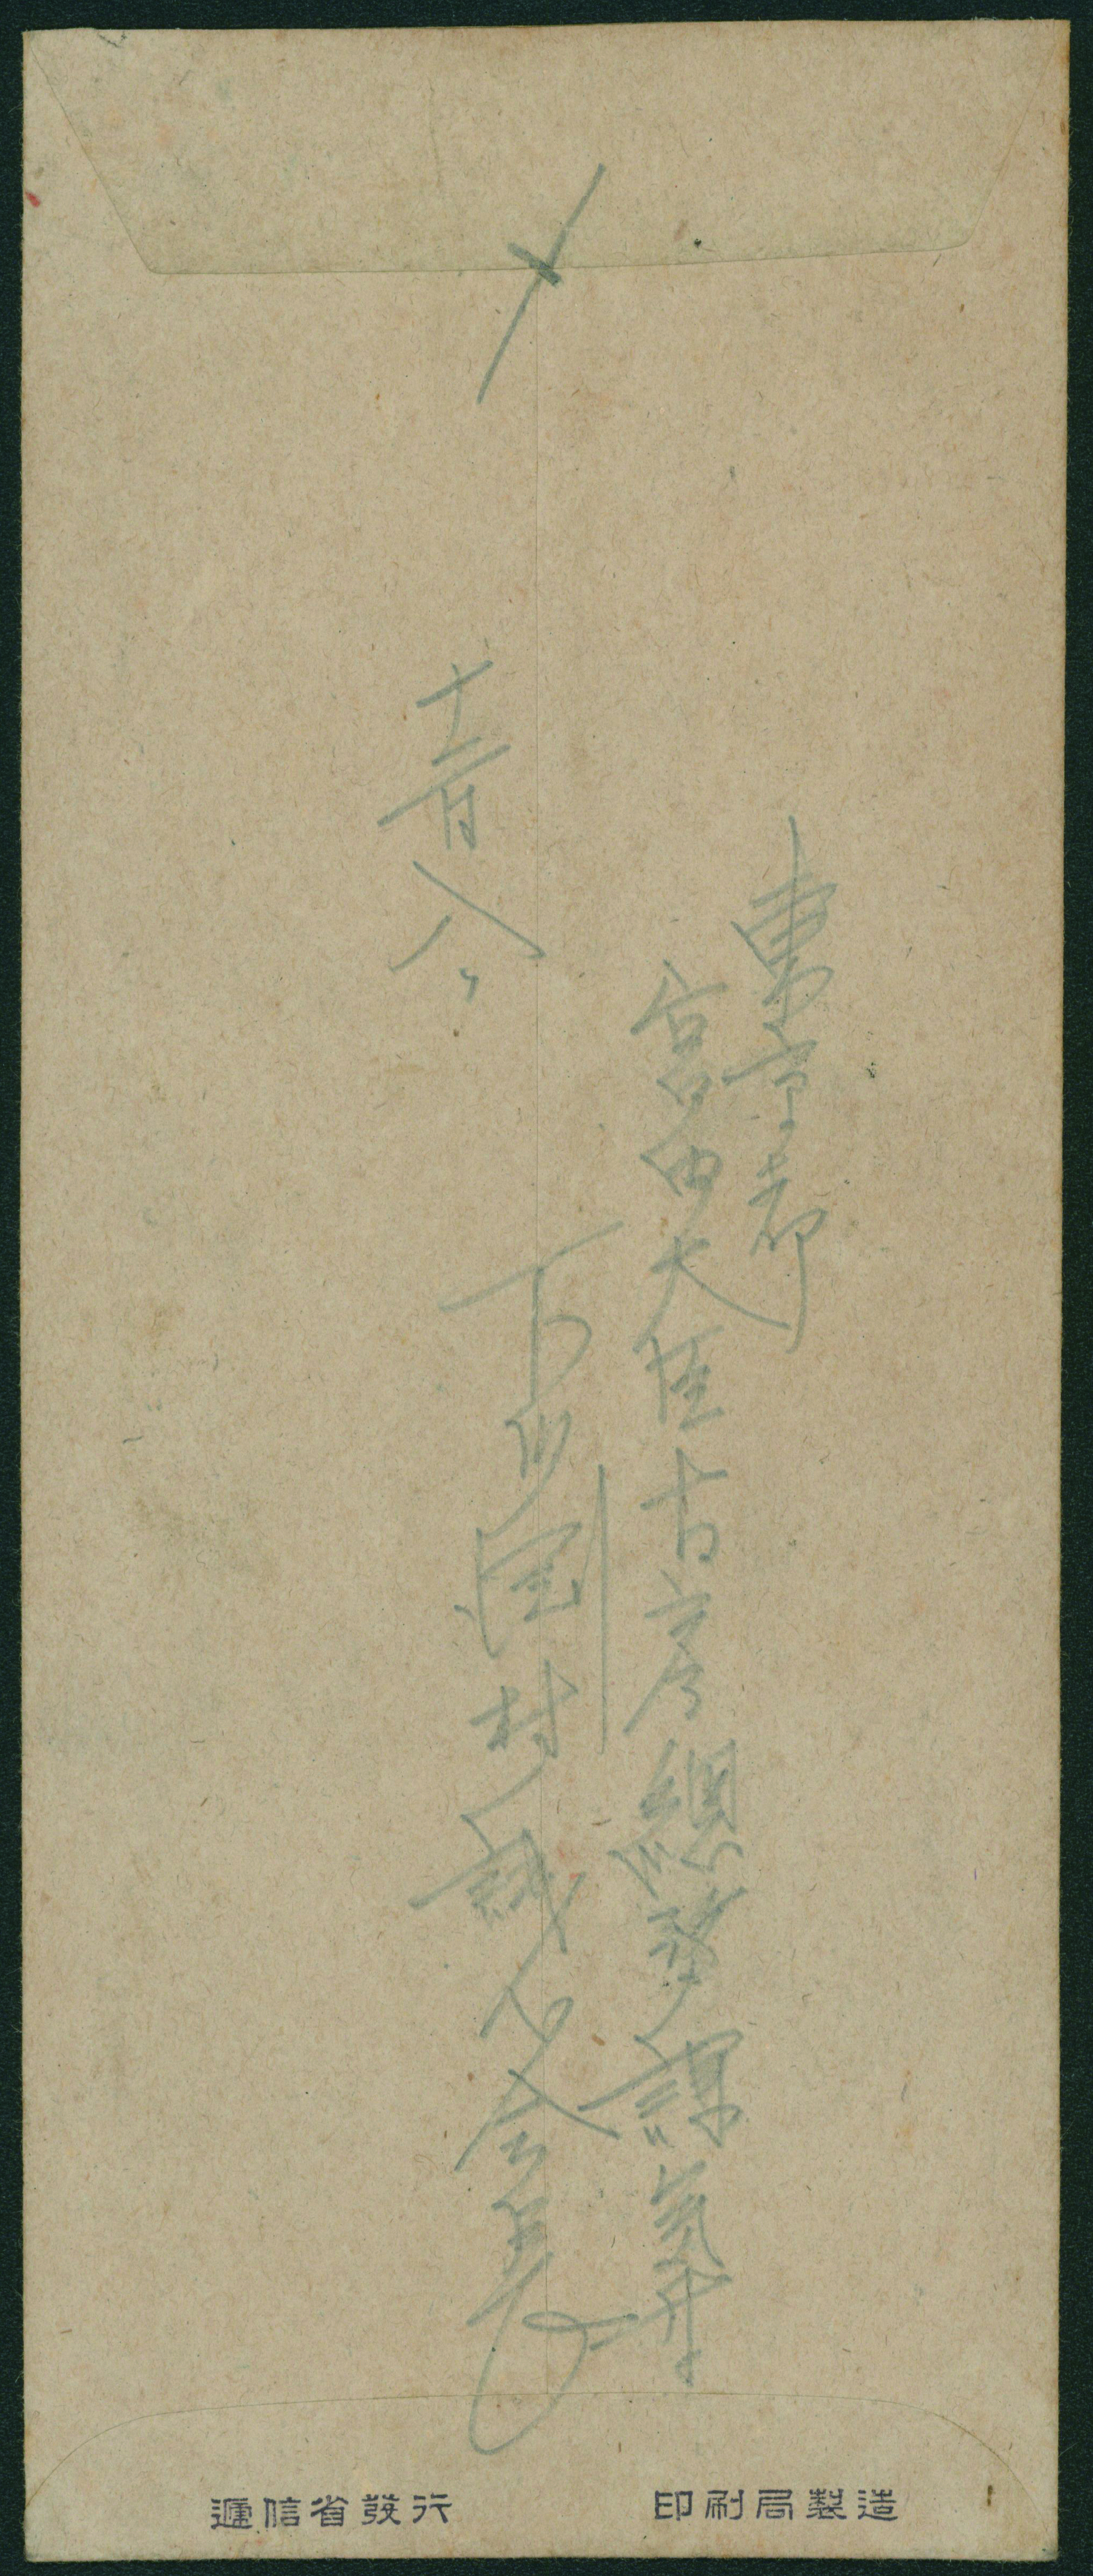 〆
東京都
宮内大臣官房總務課氣付
下川淵村誠心会
十二月八日
遞信省發行
印刷局製造